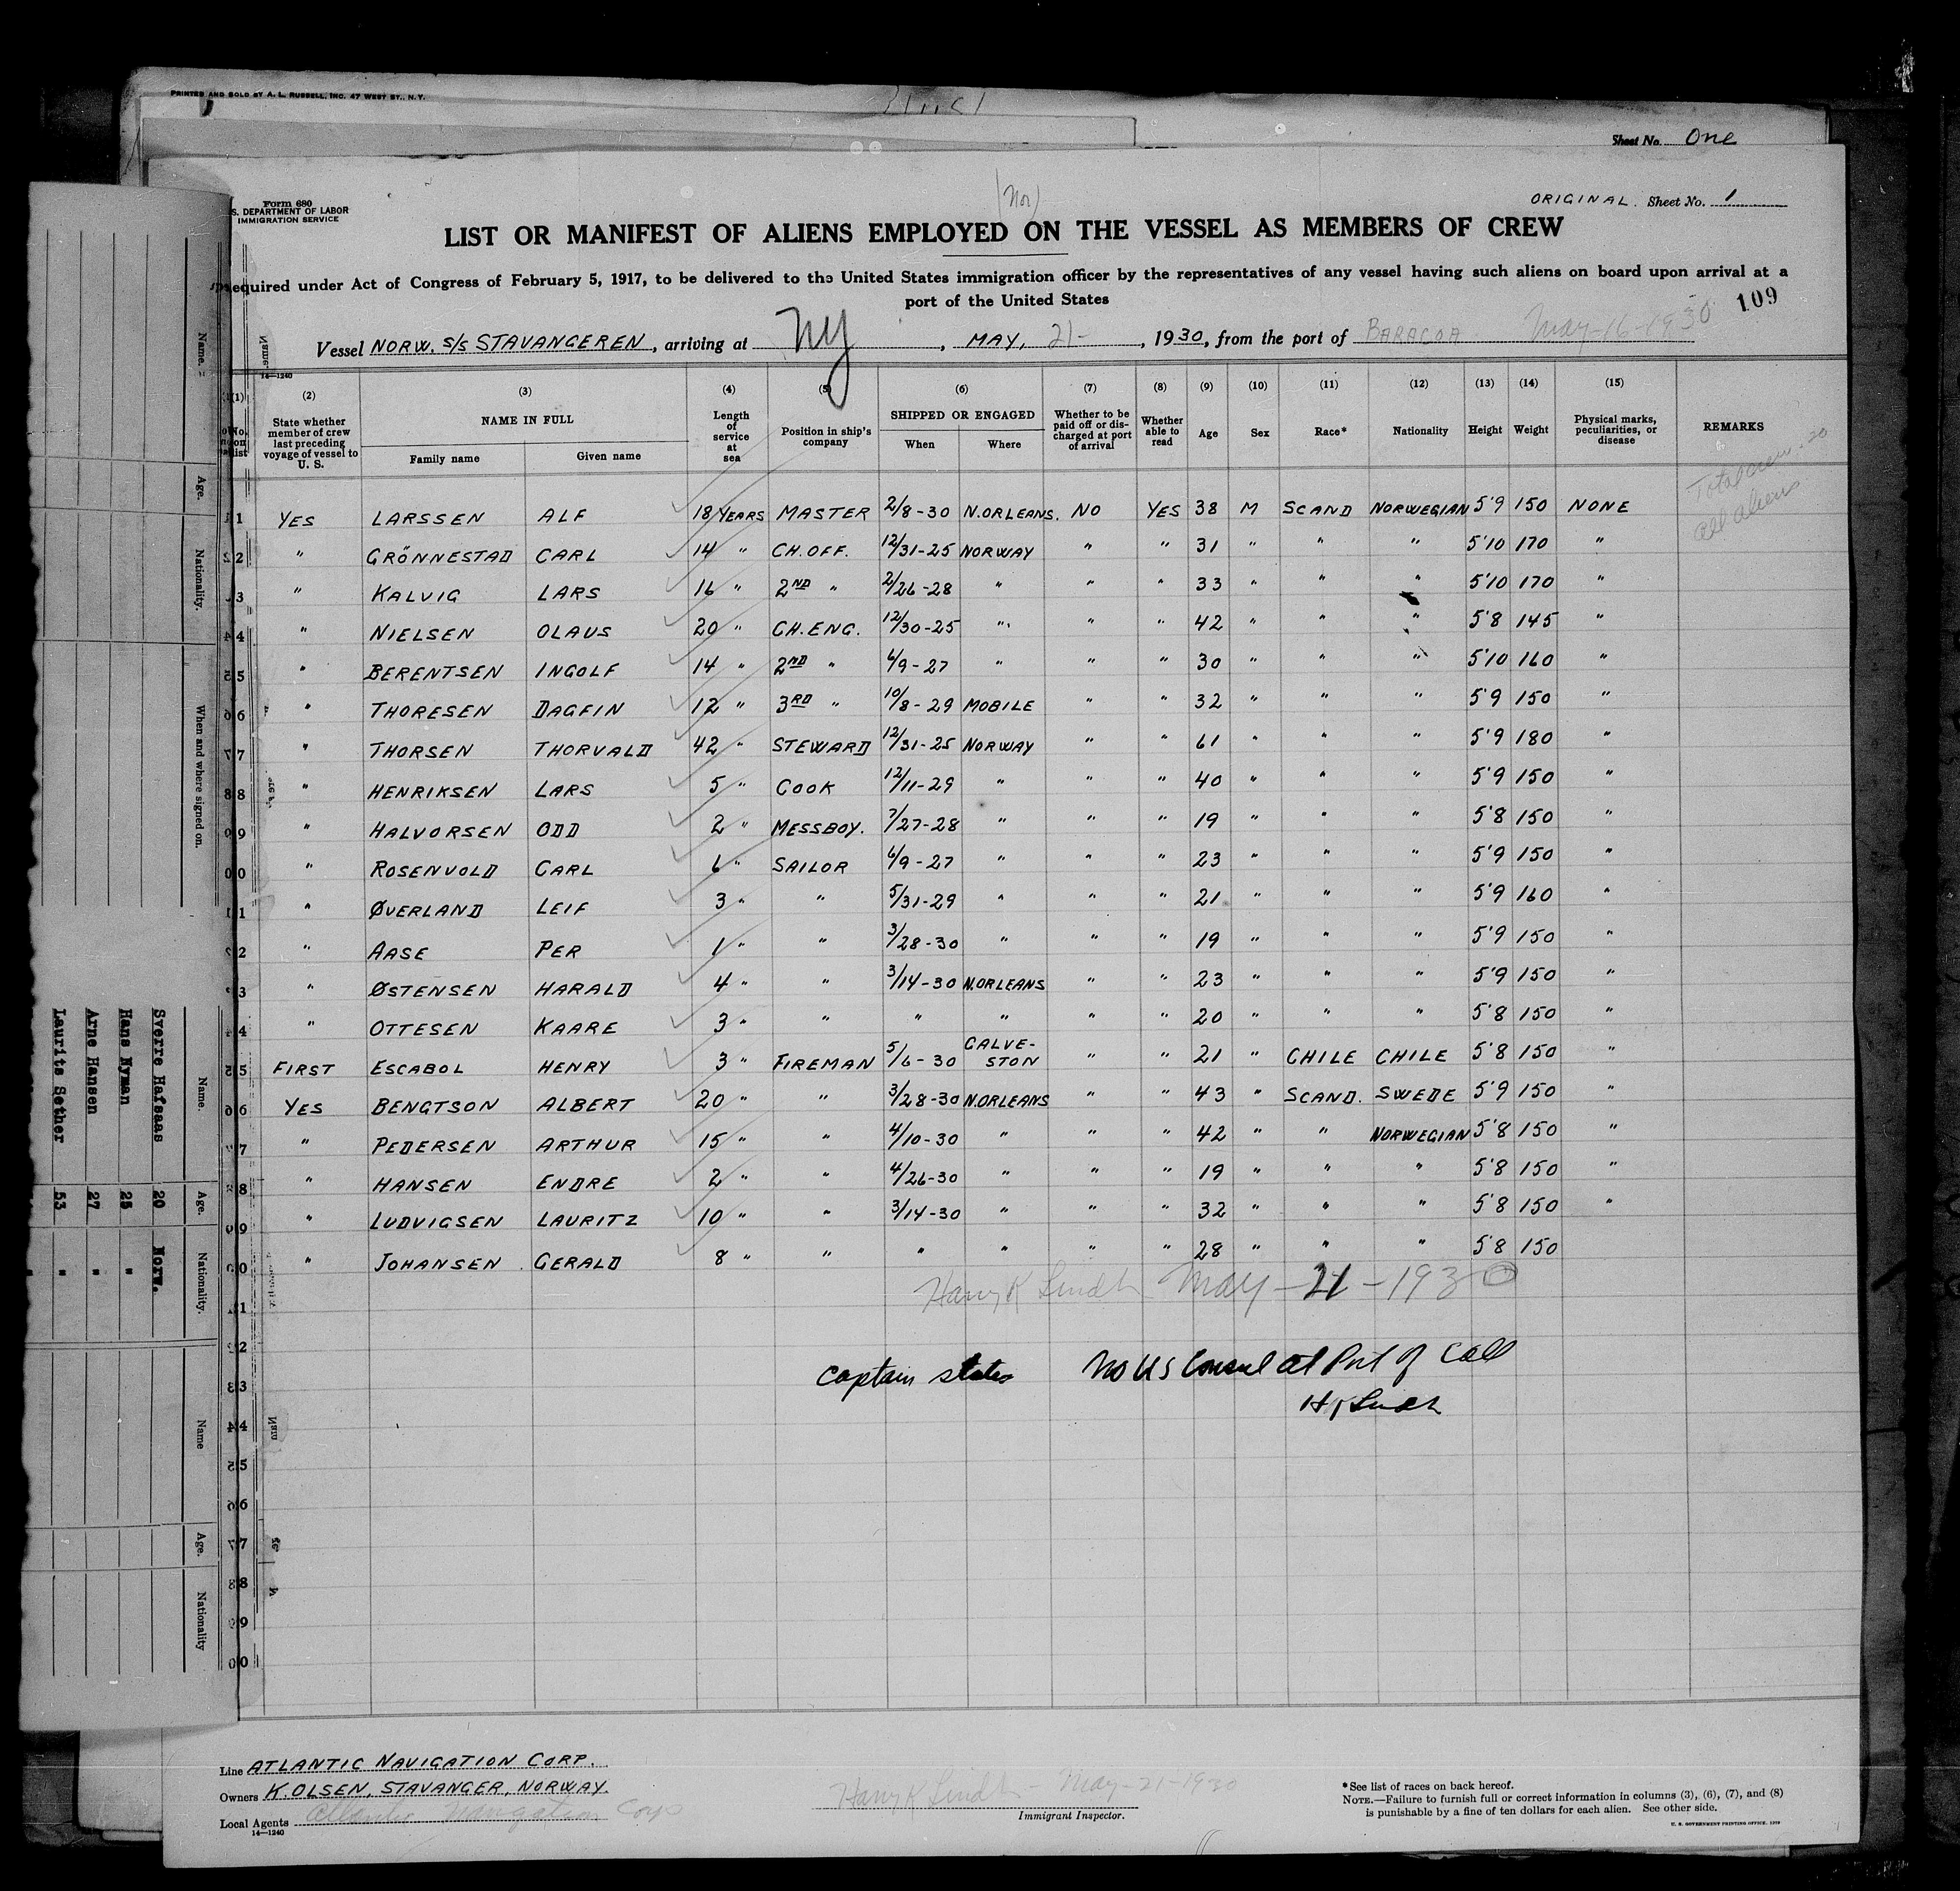 PRINTED AND SOLD BY A. L. RUSSELL, INC. 47 WEST ST., N.Y.
Sheet No. One
Form 680
S. DEPARTMENT OF LABOR
IMMIGRATION SERVICE
(Nor)
ORIGINAL. Sheet No. 1
LIST OR MANIFEST OF ALIENS EMPLOYED ON THE VESSEL AS MEMBERS OF CREW
equired under Act of Congress of February 5, 1917, to be delivered to the United States immigration officer by the representatives of any vessel having such aliens on board upon arrival at a
port of the United States
109
Vessel NORW. S/S STAVANGEREN, arriving at NY, MAY, 21-, 1930, from the port of BARACOA May-16-1930
14—1240
(1) (2) (3) (4) (5) (6) (7) (8) (9) (10) (11) (12) (13) (14) (15)
No. on list | State whether member of crew last preceding voyage of vessel to U. S. | NAME IN FULL | Family name | Given name | Length of service at sea | Position in ship's company | SHIPPED OR ENGAGED | When | Where | Whether to be paid off or discharged at port of arrival | Whether able to read | Age | Sex | Race* | Nationality | Height | Weight | Physical marks, peculiarities, or disease | REMARKS
Total crew 20
all aliens
1 YES LARSSEN ALF 18 YEARS MASTER 2/8-30 N.ORLEANS. NO YES 38 M SCAND NORWEGIAN 5'9 150 NONE
2 " GRÖNNESTAD CARL 14 " CH. OFF. 12/31-25 NORWAY " " 31 " " " 5'10 170 "
3 " KALVIG LARS 16 " 2ND " 2/26-28 " " " 33 " " " 5'10 170 "
4 " NIELSEN OLAUS 20 " CH. ENG. 12/30-25 " " " 42 " " " 5'8 145 "
5 " BERENTSEN INGOLF 14 " 2ND " 6/9-27 " " " 30 " " " 5'10 160 "
6 " THORESEN DAGFIN 12 " 3RD " 10/8-29 MOBILE " " 32 " " " 5'9 150 "
7 " THORSEN THORVALD 42 " STEWARD 12/31-25 NORWAY " " 61 " " " 5'9 180 "
8 " HENRIKSEN LARS 5 " COOK 12/11-29 " " " 40 " " " 5'9 150 "
9 " HALVORSEN ODD 2 " MESSBOY. 7/27-28 " " " 19 " " " 5'8 150 "
0 " ROSENVOLD CARL 6 " SAILOR 6/9-27 " " " 23 " " " 5'9 150 "
1 " ØVERLAND LEIF 3 " " 5/31-29 " " " 21 " " " 5'9 160 "
2 " AASE PER 1 " " 3/28-30 " " " 19 " " " 5'9 150 "
3 " ØSTENSEN HARALD 4 " " 3/14-30 N.ORLEANS " " 23 " " " 5'9 150 "
4 " OTTESEN KAARE 3 " " " " " " 20 " " " 5'8 150 "
5 FIRST ESCABOL HENRY 3 " FIREMAN 5/6-30 GALVE-STON " " 21 " CHILE CHILE 5'8 150 "
6 YES BENGTSON ALBERT 20 " " 3/28-30 N.ORLEANS " " 43 " SCAND. SWEDE 5'9 150 "
7 " PEDERSEN ARTHUR 15 " " 4/10-30 " " " 42 " " NORWEGIAN 5'8 150 "
8 " HANSEN ENDRE 2 " " 4/26-30 " " " 19 " " " 5'8 150 "
9 " LUDVIGSEN LAURITZ 10 " " 3/14-30 " " " 32 " " " 5'8 150 "
0 " JOHANSEN GERALD 8 " " " " " " 28 " " " 5'8 150
Harry K Lindh May-21-1930
Captain states No US Consul at Port of Call
H K Lindh
Line ATLANTIC NAVIGATION CORP.
Owners K. OLSEN, STAVANGER, NORWAY.
Local Agents Atlantic Navigation Corp
14—1240
Harry K Lindh - May-21-1930
Immigrant Inspector.
*See list of races on back hereof.
NOTE.—Failure to furnish full or correct information in columns (3), (6), (7), and (8)
is punishable by a fine of ten dollars for each alien. See other side.
U. S. GOVERNMENT PRINTING OFFICE. 1929
Name. Age. Nationality. When and where signed on.
Name. Age. Nationality.
Sverre Hafsaas 20 Norw.
Hans Nyman 25 "
Arne Hansen 27 "
Laurits Sether 53 "
Name Age. Nationality